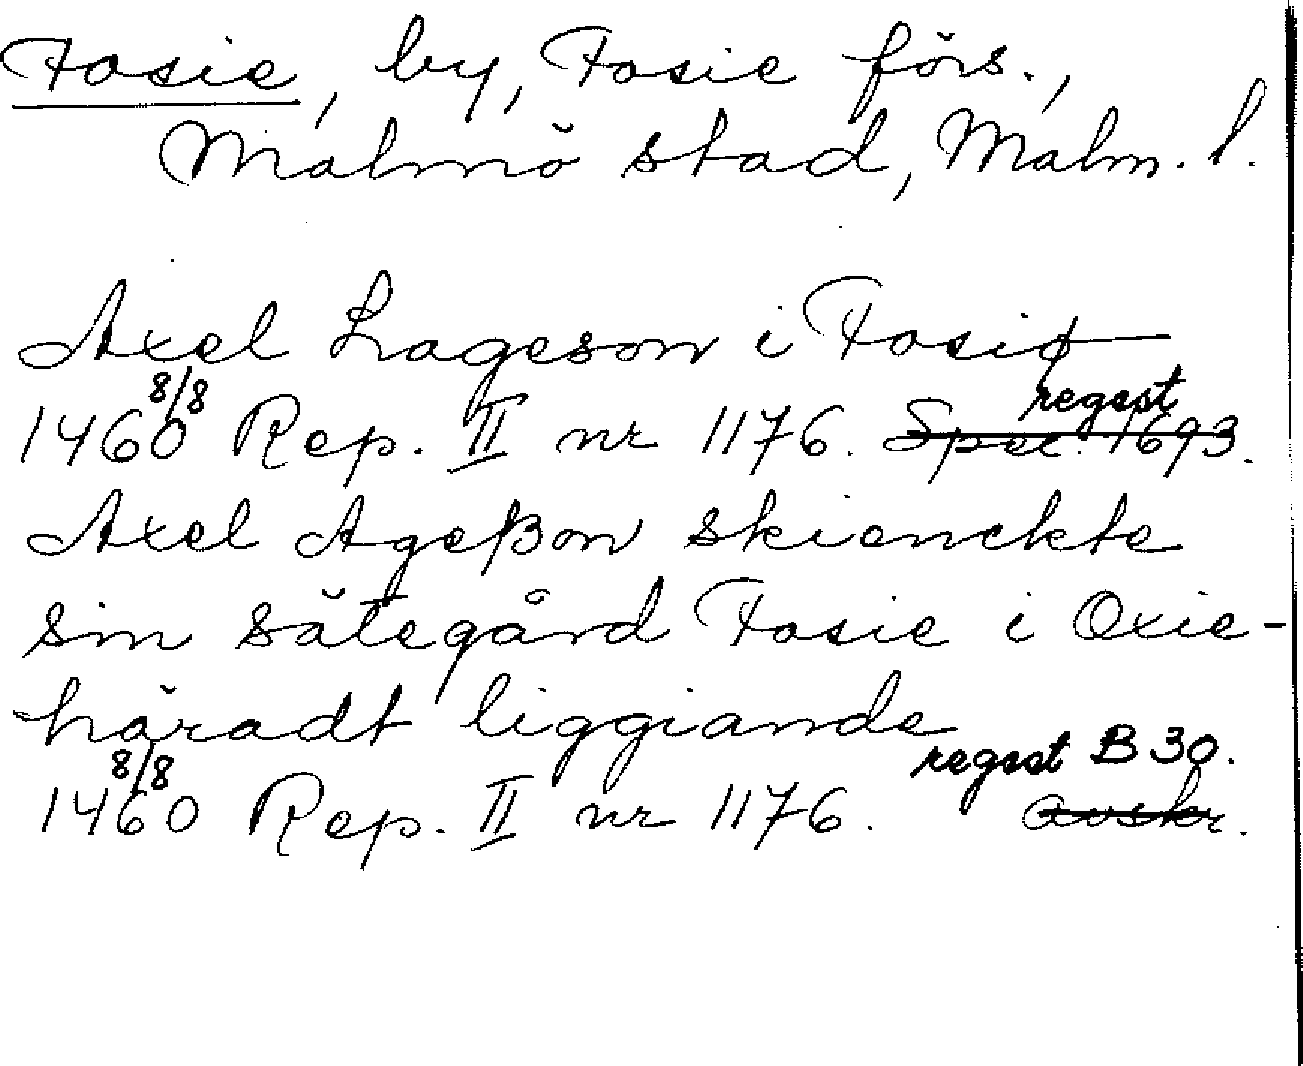 Fosie, by, Fosie förs.,
Malmö stad, Malm. l.
Axel Lageson i Fosiø
1460 8/8 Rep. II nr 1176. Spec. 1693. regest
Axel Ageßon skienckte
sin sätegård Fosie i Oxie-
häradt liggiande
1460 8/8 Rep. II nr 1176. regest B 30. avskr.